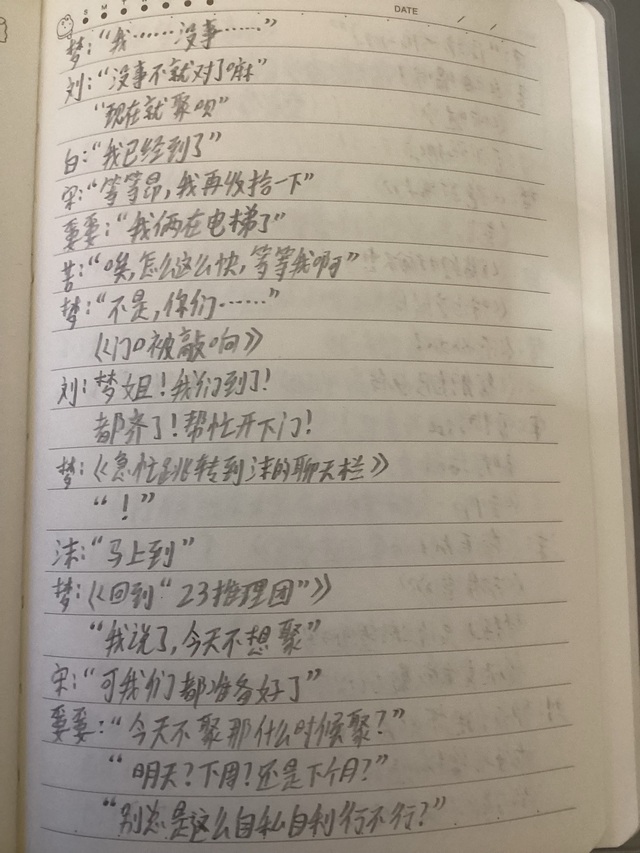 DATE
梦:“我……没事……”
刘:“没事不就对了嘛”
“现在就聚呗”
白:“我已经到了”
宋:“等等昂,我再收拾一下”
要要:“我俩在电梯了”
苦:“唉,怎么这么快,等等我啊”
梦:“不是,你们……”
《门口被敲响》
刘:梦姐!我们到了!
都齐了!帮忙开下门!
梦:《急忙跳转到沫的聊天栏》
“!”
沫:“马上到”
梦:《回到“23推理团”》
“我说了,今天不想聚”
宋:“可我们都准备好了”
要要:“今天不聚那什么时候聚?”
“明天?下周?还是下个月?”
“别总是这么自私自利行不行?”